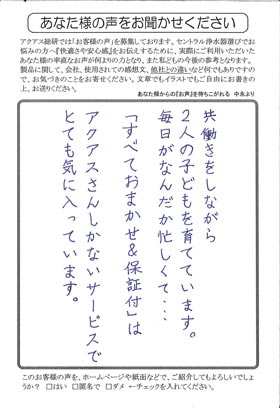 あなた様の声をお聞かせください
アクアス総研では「お客様の声」を募集しております。セントラル浄水器選びでお
悩みの方へ『快適さや安心感』をお伝えするために、実際にご利用いただいた
あなた様の率直なお声が何よりの力となり、また私どもの今後の参考となります。
製品に関して、会社、使用されての感想文、他社との違いなど何でもありですの
で、お気づきのことをお寄せください。文章でもイラストでもご自由にお書きの
上、お送りください。
あなた様からの『お声』を待ちこがれる 中永より
共働きをしながら
2人の子どもを育てています。
毎日がなんだか忙しくて・・・
「すべておまかせ&保証付」は
アクアスさんしかないサービスで
とても気に入っています。
このお客様の声を、ホームページや紙面などで、ご紹介してもよろしいでしょ
うか? □はい □匿名で □ダメ ←チェックを入れてください。